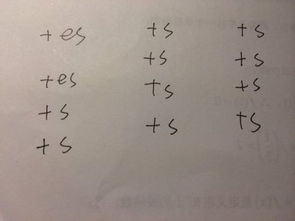 +es +s +s
+s +s
+es +s +s
+s +s +s
+s